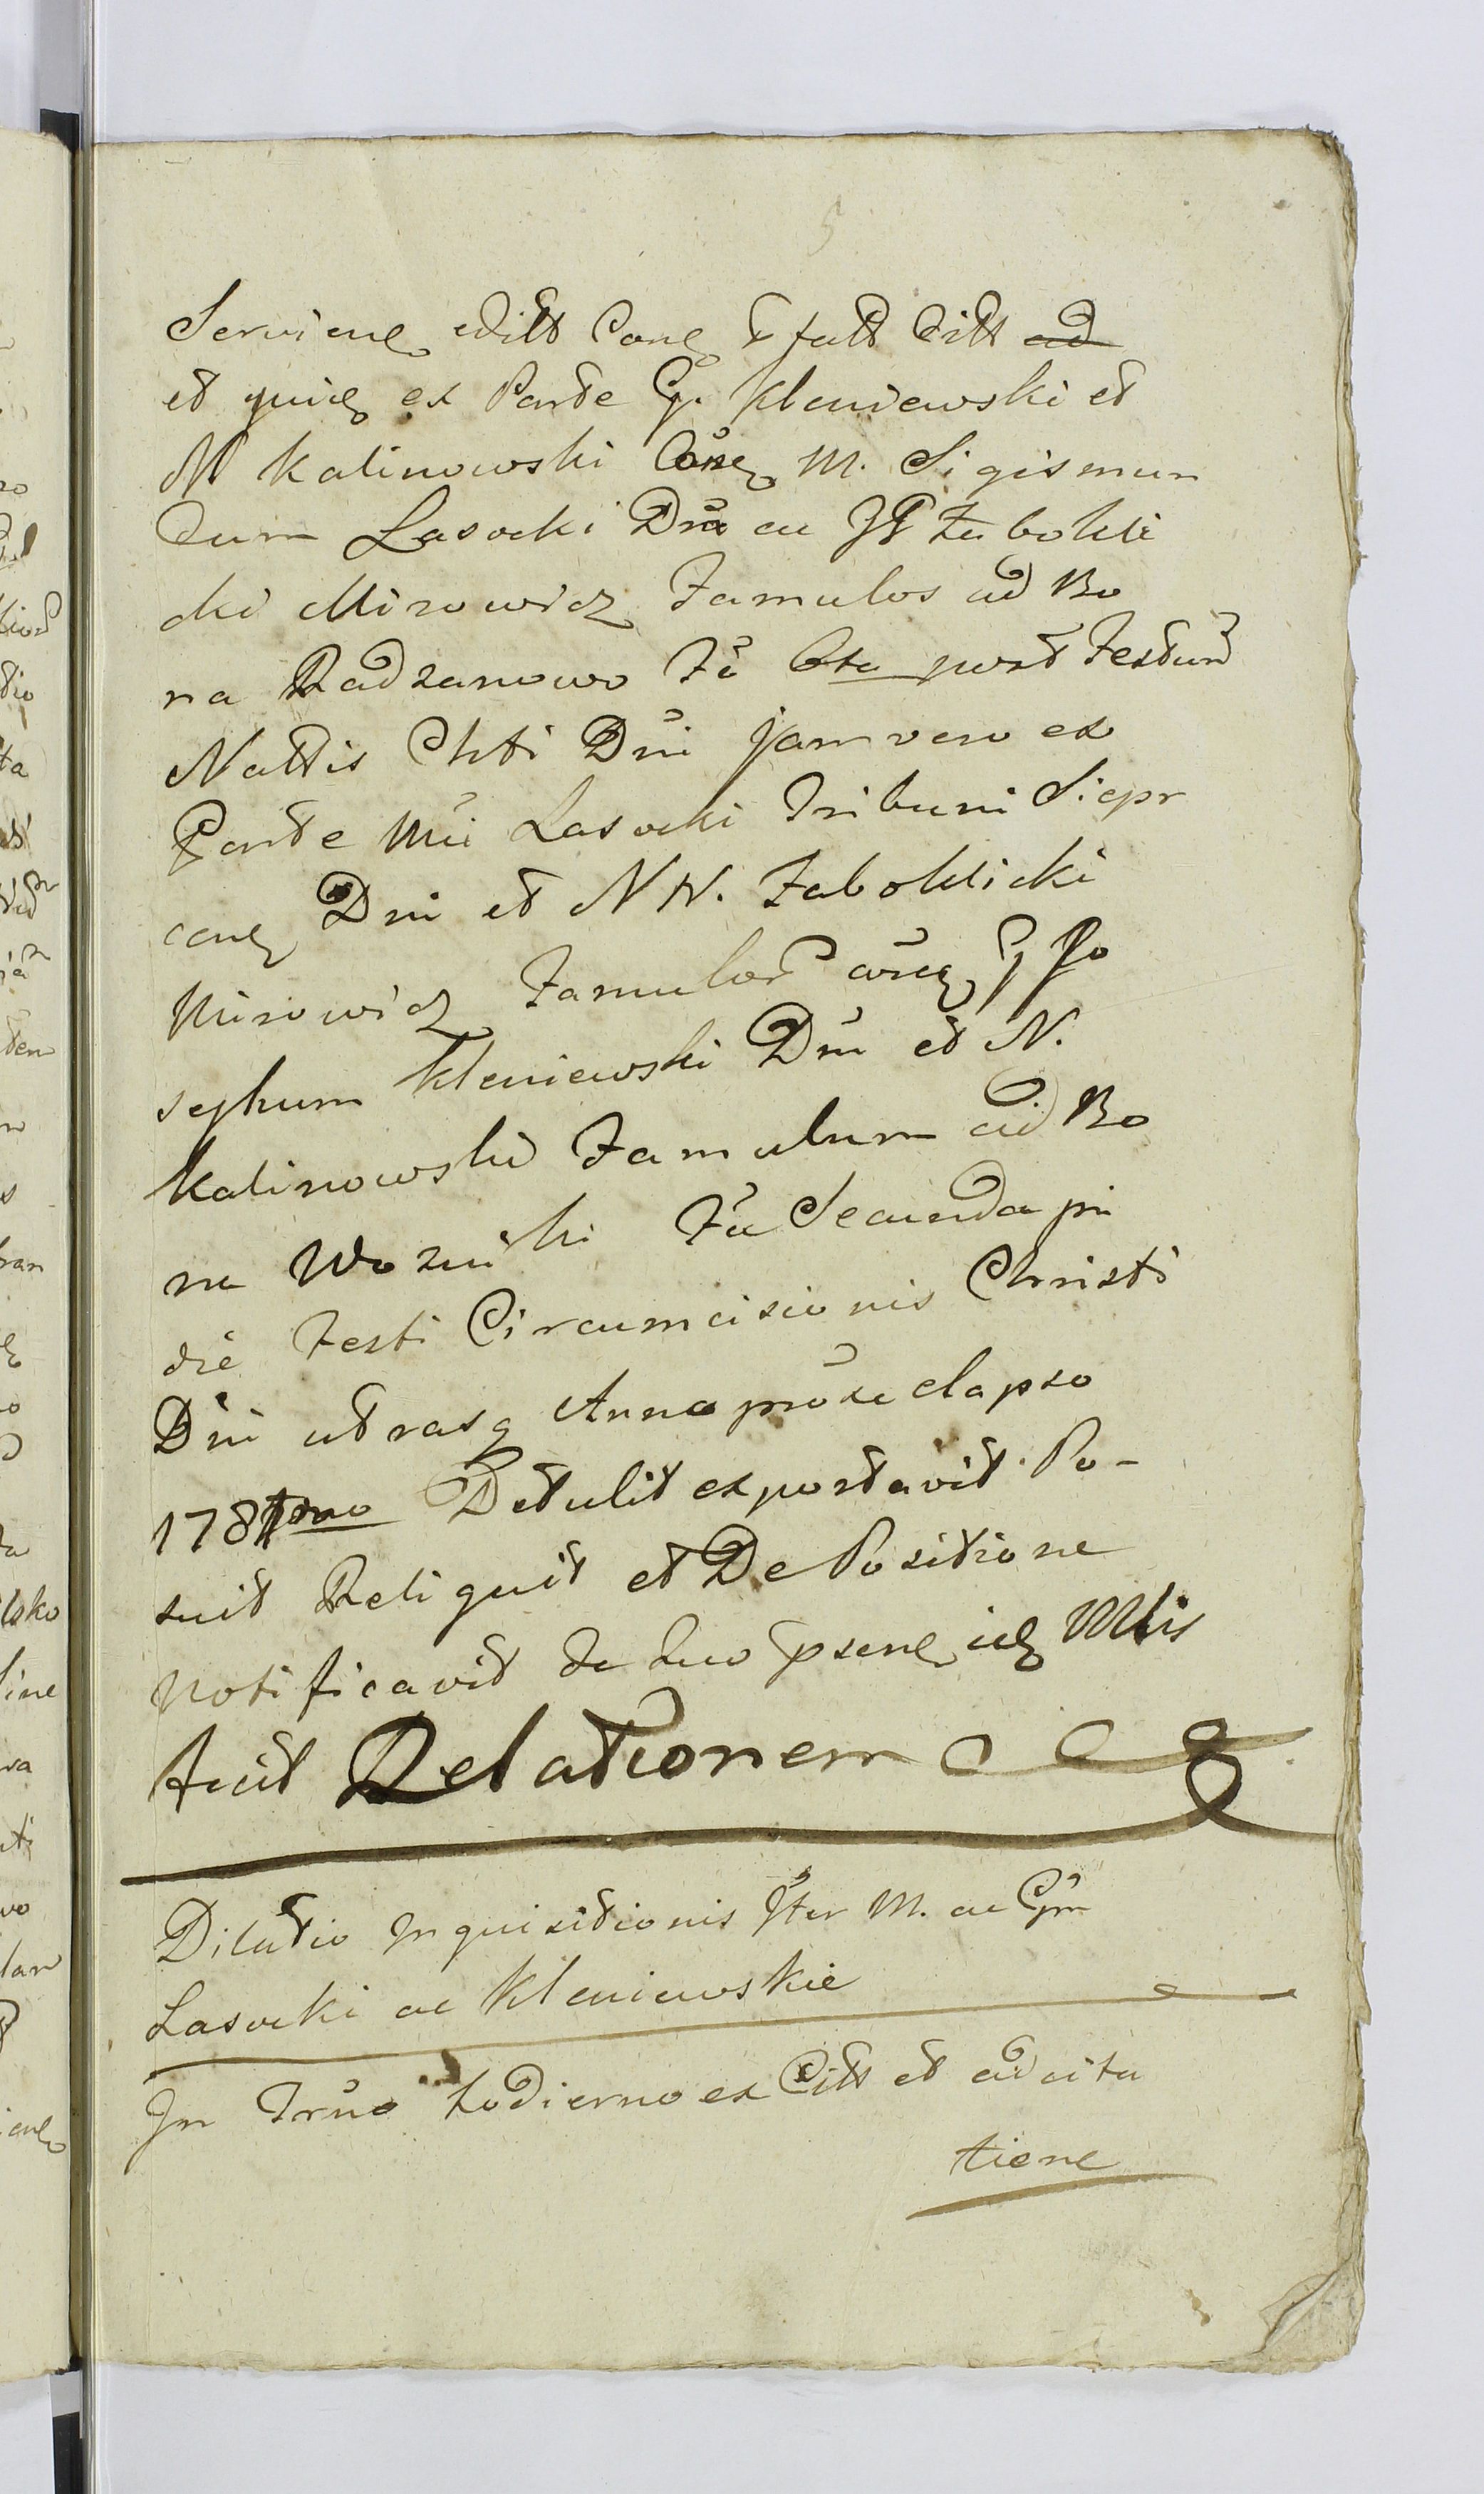 5
Servien edilt Con fatt Citt ad
et quid ex Parte G. Kleniewski et
M Kalinowski Con M. Sigismun
dum Lasocki Dn ac JJ Zabokli
cki Mirowicz Famulos ad Bo
na Radzanowo Fa 6ta post Festum
Nattis Chti Dni jam vero ex
Parte Mci Lasocki Tribuni Siepr
con Dni et N N. Zaboklicki
Mirowicz Famulor con G Jo
sephum Kleniewski Dni et N.
Kalinowski Famulum ad Bo
na Wozniki Fa Secunda pri
die Festi Circumcisionis Christi
Dni utrasq Anno proxe elapso
1781mo Detulit exportavit Po-
suit Reliquit et De Positione
notificavit de quo psen Mlis
fecit Relationem
Dilatio Inquisitionis Jter M. ac G
Lasocki ac Kleniewskie
In Trno hodierno ex Citt et ad cita
tione